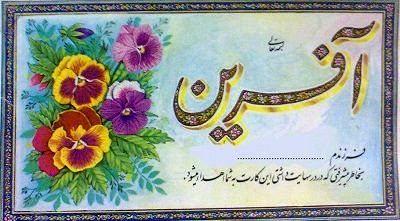 بسمه تعالی
آفرین
فرزندم ........................
بخاطر پیشرفتی که در درسهایت داشتی این کارت به شما اهدا میشود.